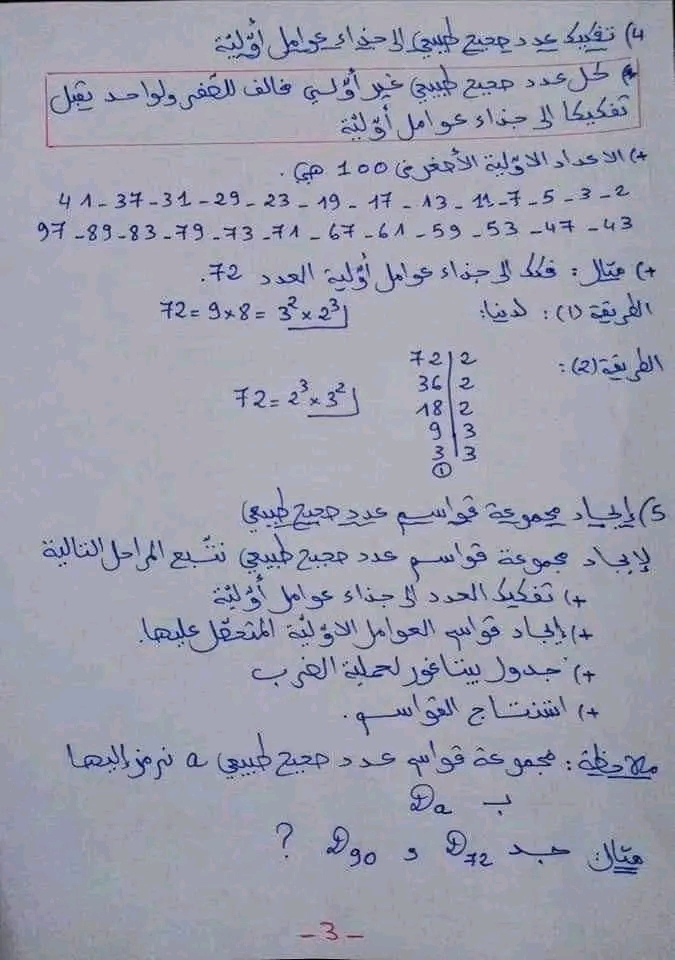 4) تفكيك عدد صحيح طبيعي إلى جذاء عوامل أوّليّة
لكل عدد صحيح طبيعي غير أوّلي مخالف للصّفر ولواحد يقبل
تفكيكا إلى جذاء عوامل أوّليّة
+) الأعداد الأوّلية الأصغر من 100 هي.
2 - 3 - 5 - 7 - 11 - 13 - 17 - 19 - 23 - 29 - 31 - 37 - 41
43 - 47 - 53 - 59 - 61 - 67 - 71 - 73 - 79 - 83 - 89 - 97
+) مثال: فكك إلى جذاء عوامل أوّلية العدد 72.
الطريقة (1): لدينا: 72 = 9 × 8 = 3² × 2³
الطريقة (2):
72 | 2
36 | 2
18 | 2
9 | 3
3 | 3
1
72 = 2³ × 3²
5) إيجاد مجموعة قواسم عدد صحيح طبيعي
لإيجاد مجموعة قواسم عدد صحيح طبيعي نتّبع المراحل التالية
+) تفكيك العدد إلى جذاء عوامل أوّليّة
+) إيجاد قواسم العوامل الأوّليّة المتحصّل عليها.
+) جدول بيتاغور لعملية الضرب
+) استنتاج القواسم.
ملاحظة: مجموعة قواسم عدد صحيح طبيعي a نرمز إليها
ب Da
مثال: جد D72 و D90 ?
- 3 -